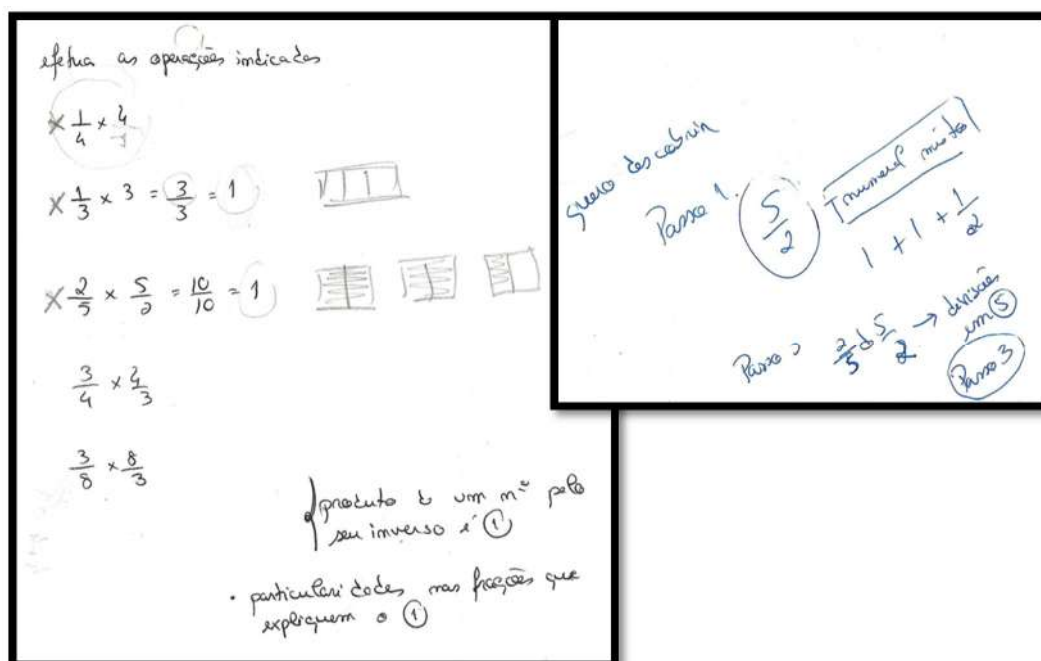 efetua as operações indicadas
× 1/4 × 4/1
× 1/3 × 3 = 3/3 = 1
× 2/5 × 5/2 = 10/10 = 1
3/4 × 4/3
3/8 × 8/3
produto d um nº pelo
seu inverso é 1
• particularidades nas frações que
expliquem o 1
quero descobrir
Passo 1. 5/2
numeral misto
1 + 1 + 1/2
Passo 2 2/5 d 5/2 → divisões
em 5
Passo 3